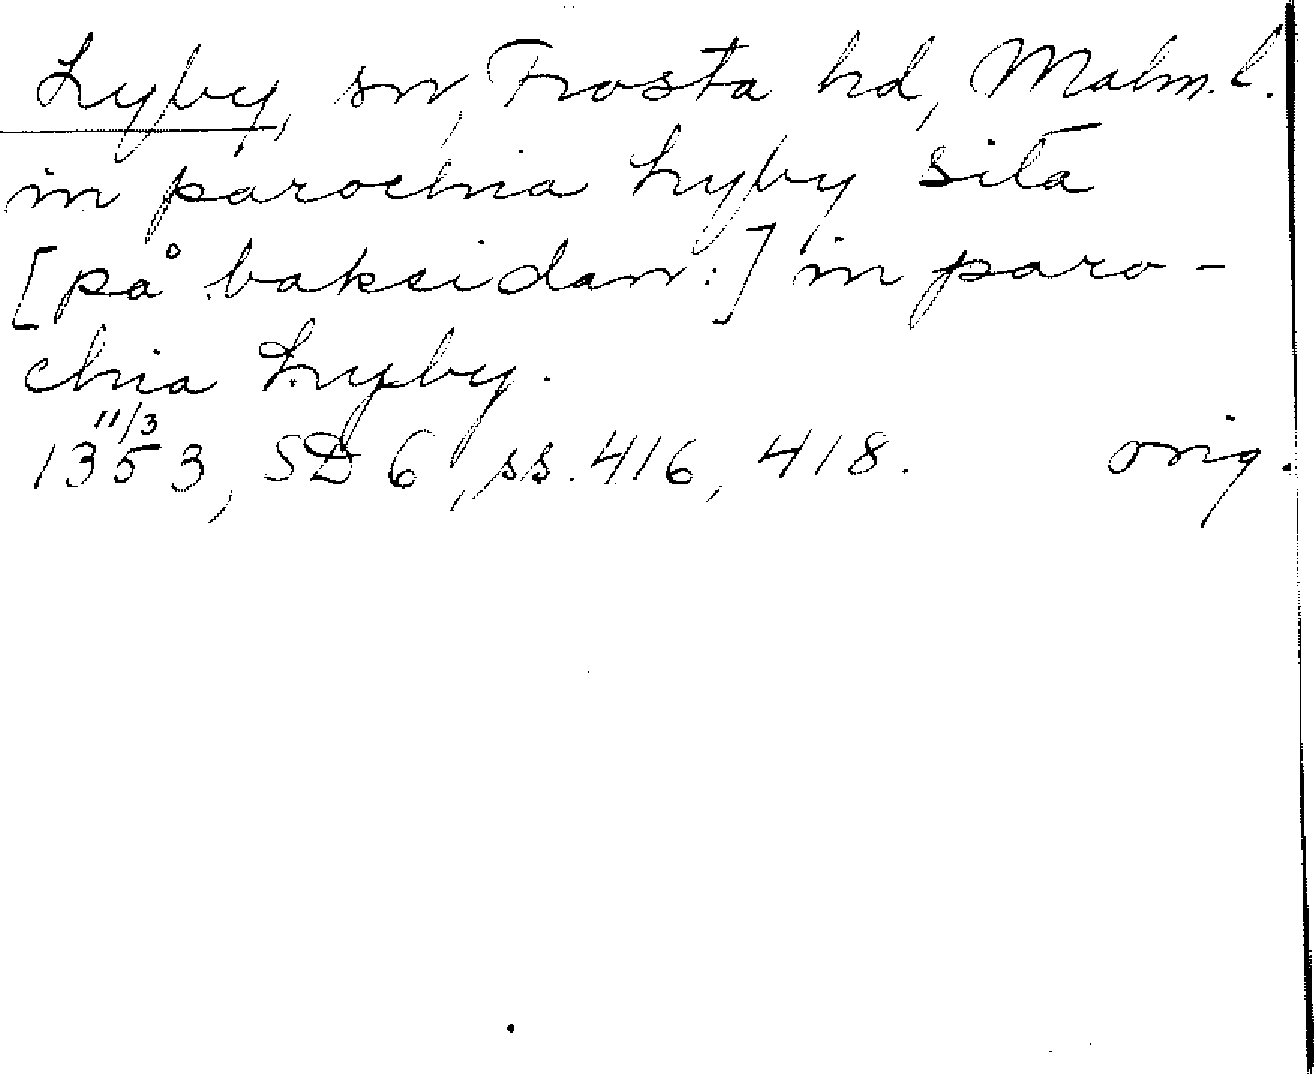 Lyby, sn, Frosta hd, Malm. l.
in parochia Lyby sita
[på baksidan:] in paro-
chia Lyby.
13 11/3 53, SD 6, ss. 416, 418. orig.